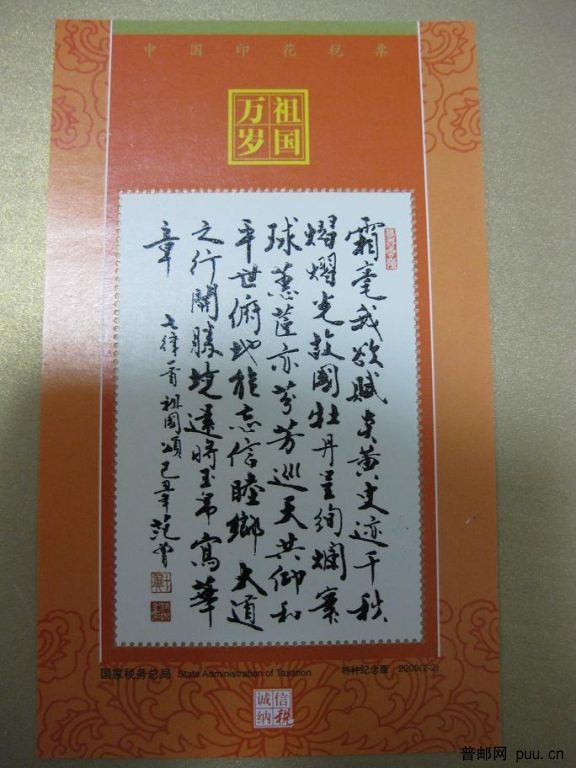 中国印花税票
祖国
万岁
霜毫我欲赋炎黄史迹千秋
熠熠光故國牡丹呈绚爛寰
球蕙茝亦芬芳巡天共仰和
平世俯地能忘信睦鄉大道
之行開勝境將玉帛寫華
章
七律一首 祖國頌 己丑年 范曾
国家税务总局 State Administration of Taxation 特种纪念票 2009(2-2)
诚信
纳税
普邮网 puu.cn